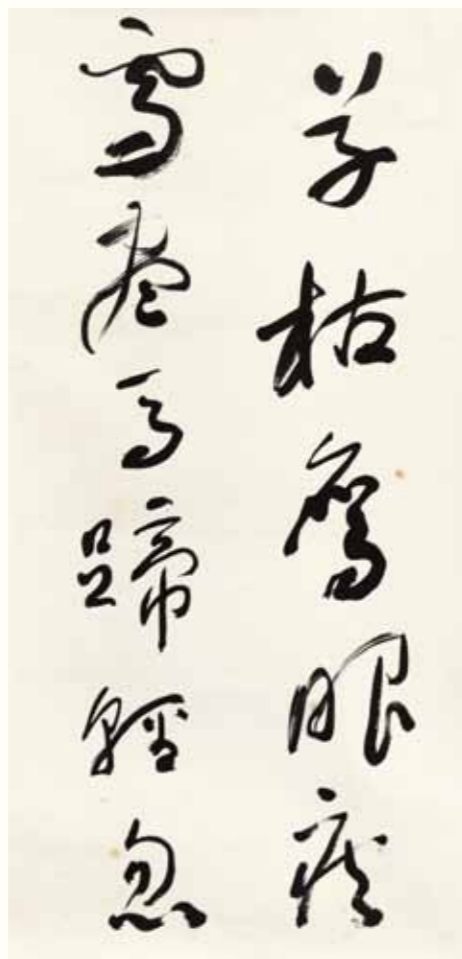 草枯鷹眼疾
雪盡馬蹄輕忽